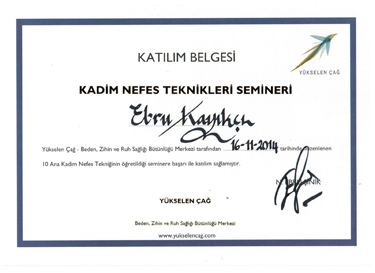 KATILIM BELGESİ
YÜKSELEN ÇAĞ
KADİM NEFES TEKNİKLERİ SEMİNERİ
Ebru Kayıkçı
Yükselen Çağ - Beden, Zihin ve Ruh Sağlığı Bütünlüğü Merkezi tarafından 16-11-2014 tarihinde düzenlenen
10 Ana Kadim Nefes Tekniğinin öğretildiği seminere başarı ile katılım sağlamıştır.
YÜKSELEN ÇAĞ
Beden, Zihin ve Ruh Sağlığı Bütünlüğü Merkezi
www.yukselencag.com